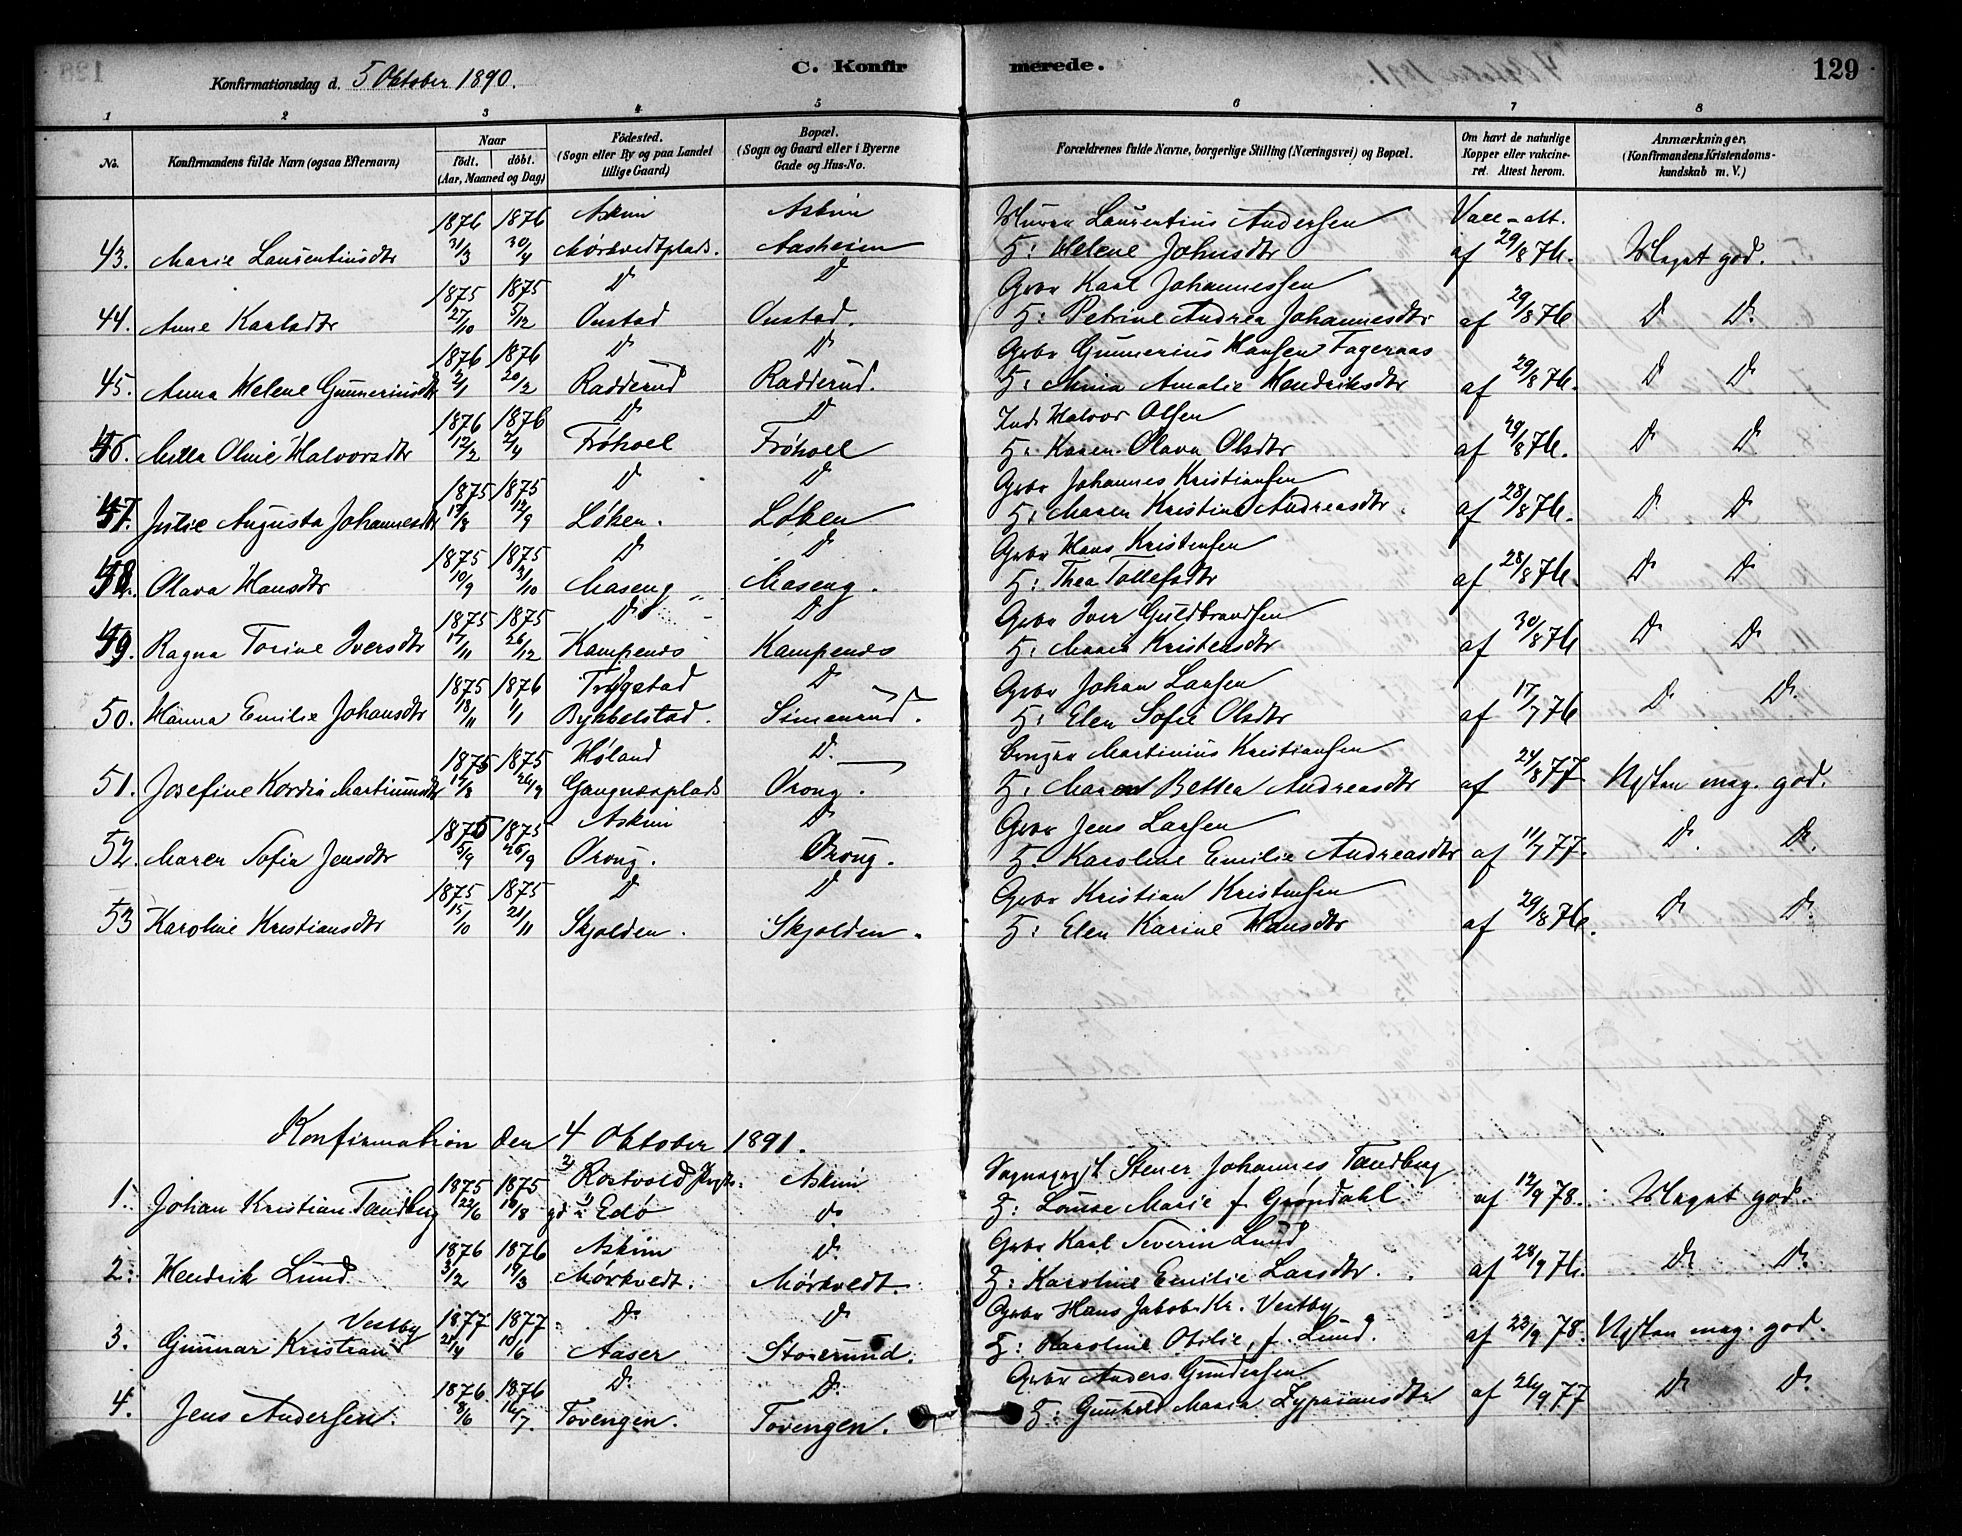 Konfirmationsdag d. 5 Oktober 1890.
C. Konfirmerede.
129
1 2 3 4 5 6 7 8
No.
Konfirmandens fulde Navn (ogsaa Efternavn)
Naar
födt. döbt.
(Aar, Maaned og Dag)
Födested.
(Sogn eller By og paa Landet
tillige Gaard)
Bopæl.
(Sogn og Gaard eller i Byerne
Gade og Hus-No.
Forældrenes fulde Navne, borgerlige Stilling (Næringsvei) og Bopæl.
Om havt de naturlige
Kopper eller vakcine-
ret. Attest herom.
Anmærkninger,
(Konfirmandens Kristendoms-
kundskab m. V.)
1876 1876 Askim Askim Laurentius Andersen
43. Marie Laurentiusdtr 31/3 30/4 Mörkvedtplads. Aasheim H: Helene Johnsdtr af 29/8 76. Meget god.
1875 1875 Do Do Gbr Karl Johannessen
44. Anne Karlsdtr 27/10 5/12 Onstad Onstad. H: Petrine Andrea Johannesdtr af 29/8 76 Do Do
1876 1876 Do Do Gbr Gunnerius Hansen Fageraas
45. Anna Helene Gunneriusdtr 2/1 20/2 Radderud Radderud. H: Amalie Hendriksdtr af 29/8 76. Do Do
1876 1876 Do Do Ind. Halvor Olsen
46. Milla Oline Halvorsdtr 12/2 2/4 Fröhoel Fröhoel H: Karen Olava Olsdtr af 29/8 76. Do Do
1875 1875 Do Do Gbr Johannes Kristiansen
47. Julie Augusta Johannesdtr 17/8 12/9 Løken. Løken H: Maren Kristine Andreasdtr. af 28/8 76. Do Do
1875 1875 Do Do Gbr Hans Kristensen
48. Olava Hansdtr 10/9 31/10 Maseng Maseng. H: Thea Tollefsdtr af 28/8 76. Do Do
1875 1875 Do Do Gbr Iver Guldbrandsen
49. Ragna Torine Iversdtr 17/11 26/12 Kampenes Kampenes H: Marie Kristensdtr af 30/8 76 Do Do
1875 1876 Trygstad Do Gbr Johan Larsen
50. Hanna Emilie Johansdtr 18/11 1/1 Bykkelstad. Simenrud. H: Elen Sofie Olsdtr af 17/7 76 Do Do
1875 1875 Høland Do. Martinius Kristiansen
51. Josefine Kordia Martinusdtr 17/8 26/9 Gangnæsplads Orong. H: Maren Bettea Andreasdtr af 24/8 77 Næsten meg. god.
1875 1875 Askim Do Gbr Jens Larsen
52. Maren Sofie Jensdtr 5/9 26/9 Orong. Orong. H. Karoline Emilie Andreasdtr af 11/7 77. Do. Do.
1875 1875 Do Do Gbr Kristian Kristensen
53 Karoline Kristiansdtr 15/10 21/11 Skjolden. Skjolden. H: Elen Karine Hansdtr af 29/8 76. Do Do
Konfirmation den 4 Oktober 1891.
1875 1875 Askim Sognepræst Stener Johannes Tandberg
1. Johan Kristian Tandberg 22/6 18/8 Edø do H: Louise Marie f. Grøndahl af 12/9 78. Meget god.
1876 1876 Askim Do Gbr Karl Severin Lund
2. Hendrik Lund 3/2 19/3 Mörkvedt. Mörkvedt. H: Karoline Emilie Larsdtr. af 28/9 76. Do Do
Vestby 1877 1877 Do Do Gbr Hans Jakob Kr. Vestby
3. Gunnar Kristian 21/4 10/6 Aaser Storerud. H: Karoline Otilie, f. Lund. af 22/9 78. Næsten meg. god.
1876 1876 Do Do Gbr Anders Gundersen
4. Jens Andersen. 8/6 16/7. Tovengen. Tovengen. H: Gunhild Maria Zypriansdtr af 26/9 77 Do Do